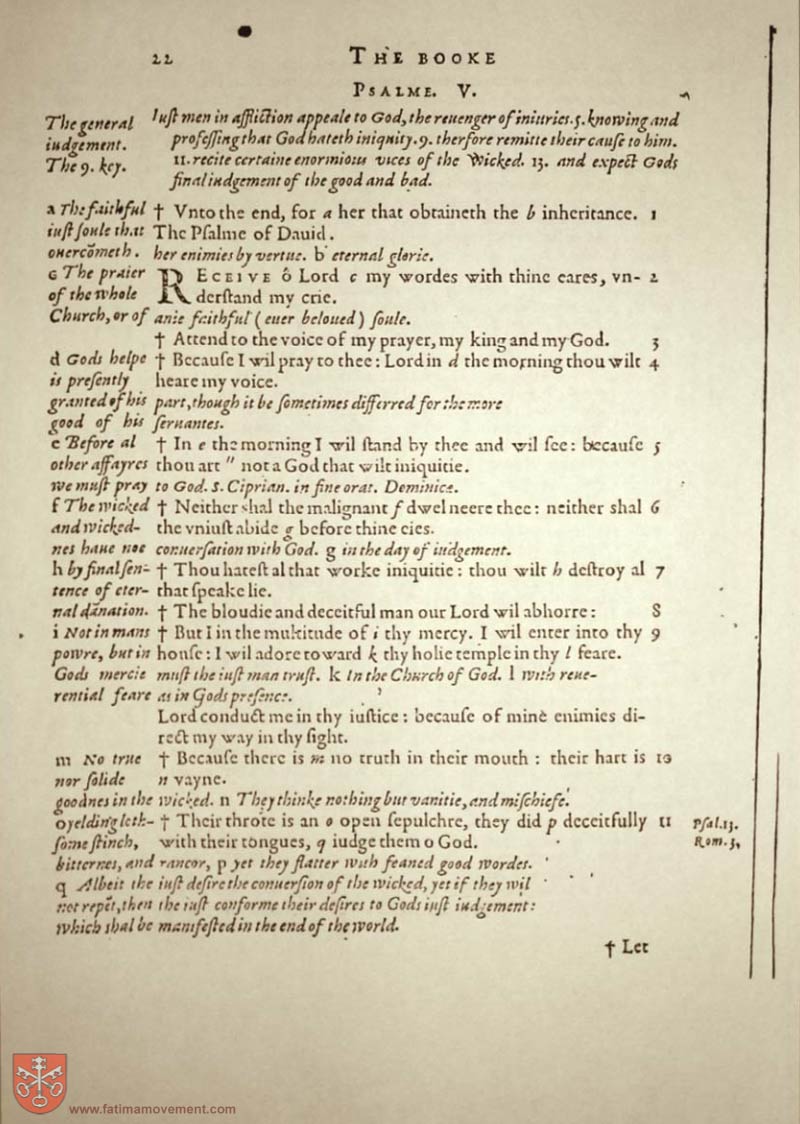 22 THE BOOKE
PSALME. V.
The general
iudgement.
The 9. key.
Iuſt men in affliction appeale to God, the reuenger of iniuries. 5. knowing and
profeſſing that God hateth iniquity. 9. therfore remitte their cauſe to him.
11. recite certaine enormious vices of the Wicked. 13. and expect Gods
final iudgement of the good and bad.
a The faithful † Vnto the end, for a her that obtaineth the b inheritance. 1
iuſt ſoule that The Pſalme of Dauid.
ouercõmeth. her enimies by vertue. b eternal glorie.
c The praier RECEIVE ô Lord c my wordes with thine eares, vn- 2
of the whole derſtand my crie.
Church, or of anie faithful (euer beloued) ſoule.
† Attend to the voice of my prayer, my king and my God. 3
d Gods helpe † Becauſe I wil pray to thee: Lord in d the morning thou wilt 4
is preſently heare my voice.
granted of his part, though it be ſometimes differred for the more
good of his ſeruantes.
e Before al † In e the morning I wil ſtand by thee and wil ſee: becauſe 5
other affayres thou art " not a God that wilt iniquitie.
we muſt pray to God. S. Ciprian. in fine orat. Dominice.
f The wicked † Neither shal the malignant f dwel neere thee: neither shal 6
and wicked- the vniuſt abide g before thine eies.
nes haue not conuerſation with God. g in the day of iudgement.
h by final ſen- † Thou hateſt al that worke iniquitie: thou wilt h deſtroy al 7
tence of eter- that ſpeake lie.
nal dãnation. † The bloudie and deceitful man our Lord wil abhorre: 8
i Not in mans † But I in the multitude of i thy mercy. I wil enter into thy 9
powre, but in houſe: I wil adore toward k thy holie temple in thy l feare.
Gods mercie muſt the iuſt man truſt. k In the Church of God. l with reue-
rential feare as in Gods preſence.
Lord conduct me in thy iuſtice: becauſe of mine enimies di-
rect my way in thy ſight.
m No true † Becauſe there is m no truth in their mouth: their hart is 10
nor ſolide n vayne.
goodnes in the wicked. n They thinke nothing but vanitie, and miſchiefe.
o yelding loth- † Their throte is an o open ſepulchre, they did p deceitfully 11 Pſal.13.
ſome ſtinch, with their tongues, q iudge them o God. Rom. 3,
bitternes, and rancor, p yet they flatter with feaned good wordes.
q Albeit the iuſt deſire the conuerſion of the wicked, yet if they wil
not repẽt, then the iuſt conforme their deſires to Gods iuſt iudgement:
which shal be manifeſted in the end of the world.
† Let
www.fatimamovement.com